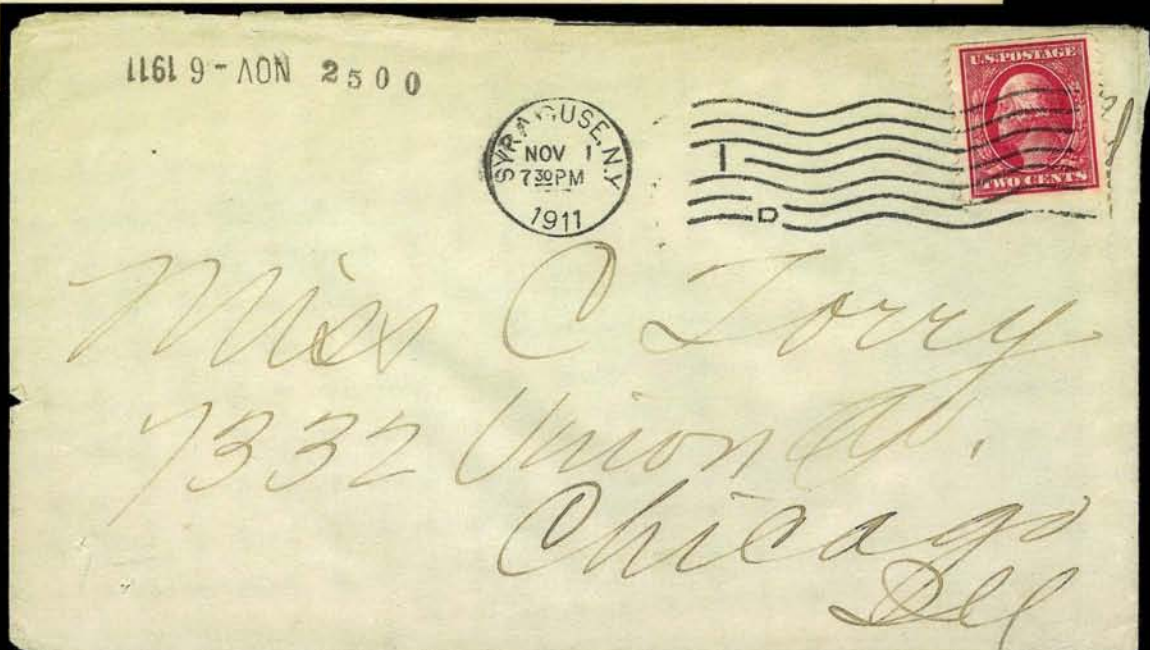 NOV -6 1911 2500
SYRACUSE, N.Y.
NOV 1
7 30 PM
1911
1
D
U.S. POSTAGE
TWO CENTS
Miss C Torry
7332 Union Av.
Chicago
Ill